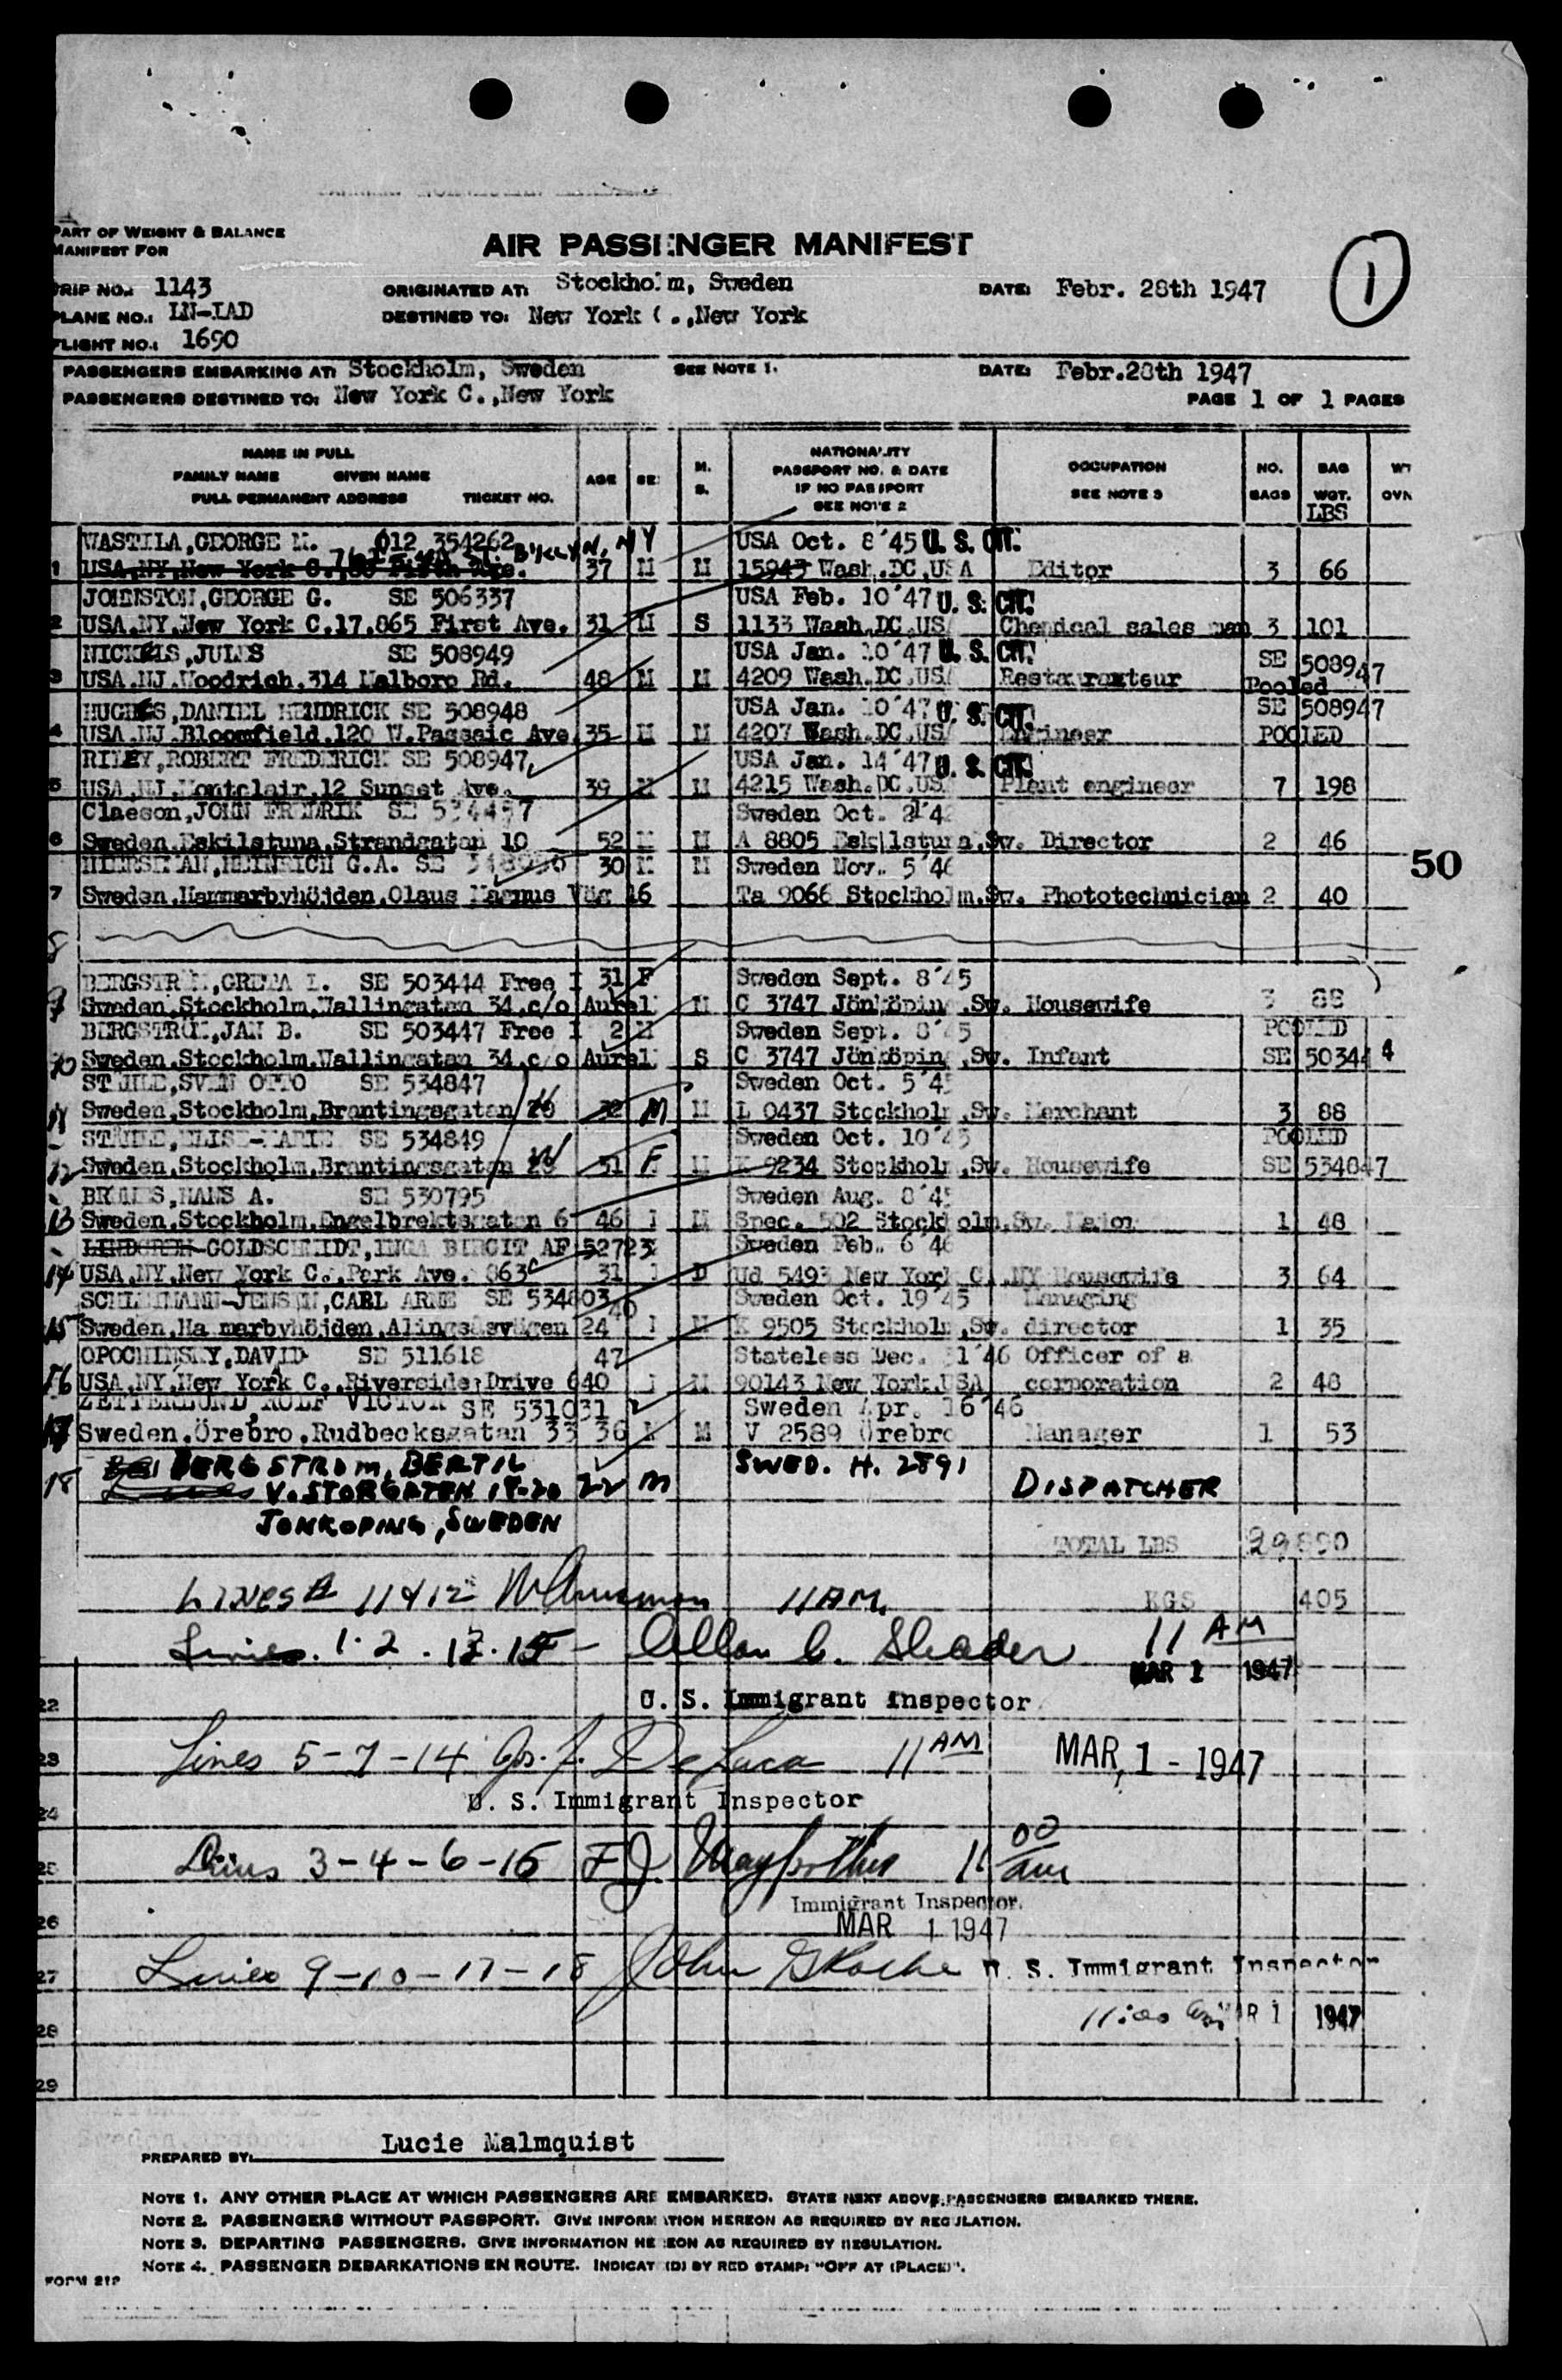 PART OF WEIGHT & BALANCE
MANIFEST FOR
AIR PASSENGER MANIFEST
1
TRIP NO.: 1143 ORIGINATED AT: Stockholm, Sweden DATE: Febr. 28th 1947
PLANE NO.: LN-IAD DESTINED TO: New York C.,New York
FLIGHT NO.: 1690
PASSENGERS EMBARKING AT: Stockholm, Sweden SEE NOTE 1. DATE: Febr.28th 1947
PASSENGERS DESTINED TO: New York C.,New York PAGE 1 OF 1 PAGES
NAME IN FULL
FAMILY NAME GIVEN NAME
FULL PERMANENT ADDRESS TICKET NO. AGE SE M. S. NATIONALITY
PASSPORT NO. & DATE
IF NO PASSPORT
SEE NOTE 2 OCCUPATION
SEE NOTE 3 NO. BAGS BAG WGT. LBS WT OVN
WASTILA,GEORGE M. 012 354262 N Y USA Oct. 8'45 U. S. CIT.
1 USA,NY,New York C., Fifth Ave. 37 M M 15943 Wash.DC,USA Editor 3 66
JOHNSTON,GEORGE G. SE 506337 USA Feb. 10'47 U. S. CIT.
2 USA.NY.New York C.17.865 First Ave. 31 M S 1133 Wash.DC.US Chemical sales man 3 101
NICKELS,JULES SE 508949 USA Jan. 10'47 U. S. CIT. SE 508947
3 USA.NJ.Woodrich.314 Malboro Rd. 48 M M 4209 Wash.DC.US Restaurateur Pooled
HUGHES,DANIEL HENDRICK SE 508948 USA Jan. 10'47 U. S. CIT. SE 508947
4 USA.NJ.Bloomfield.120 W.Passaic Ave. 35 M M 4207 Wash.DC.US Engineer POOLED
RILEY,ROBERT FREDERICK SE 508947 USA Jan. 14'47 U. S. CIT.
5 USA.NJ.Montclair.12 Sunset Ave. 39 M M 4215 Wash.DC.US Plant engineer 7 198
Claeson,JOHN FREDRIK SE 534457 Sweden Oct.
6 Sweden.Eskilstuna.Strandgatan 10 52 M M A 8805 Eskilstuna,Sw. Director 2 46
HEINRICH G.A. SE 30 M M Sweden Nov. 5'46
7 Sweden.Hammarbyhöjden.Olaus Magnus Väg 16 Ta 9066 Stockholm.Sw. Phototechnician 2 40
50
8
BERGSTRÖM,GRETA I. SE 503444 Free 31 F Sweden Sept. 8'45
9 Sweden.Stockholm.Wallingatan 34,c/o Aurel M C 3747 Jönköping,Sw. Housewife 3 88
BERGSTRÖM,JAN B. SE 503447 Free 2 M Sweden Sept. 8'45 POOLED
10 Sweden.Stockholm.Wallingatan 34,c/o Aurel S C 3747 Jönköping,Sw. Infant SE 503444
STÅHLE,SVEN OTTO SE 534847 Sweden Oct. 5'45
11 Sweden.Stockholm.Brantingsgatan 32 M M L 0437 Stockholm,Sw. Merchant 3 88
STÅHLE,ELISE-MARIE SE 534849 Sweden Oct. 10'45 POOLED
12 Sweden.Stockholm.Brantingsgatan 31 F M K 9234 Stockholm,Sw. Housewife SE 534847
HANS A. SE 530795 Sweden Aug. 8'45
13 Sweden.Stockholm.Engelbrektsgatan 6 46 M Spec. 502 Stockholm.Sw. Major 1 48
LINDGREN-GOLDSCHMIDT,INGA BIRGIT AF 52723 Sweden Feb. 6'46
14 USA.NY.New York C.,Park Ave. 863 31 D Ud 5493 New York C.,NY Housewife 3 64
SCHLEIMANN-JENSEN,CARL ARNE SE 534803 40 Sweden Oct. 19'45 Managing
15 Sweden.Ha marbyhöjden.Alingsåsvägen 24 M K 9505 Stockholm,Sw. director 1 35
OPOCHINSKY,DAVID SE 511618 47 Stateless Dec. 31'46 Officer of a
16 USA.NY.New York C..Riverside Drive 640 M 90143 New York.USA corporation 2 48
ZETTERLUND,ROLF VICTOR SE 531031 Sweden Apr. 16'46
17 Sweden.Örebro.Rudbecksgatan 33 36 M M V 2589 Örebro Manager 1 53
18 BERGSTROM, BERTIL SWED. H. 2891
V. STORGATEN 18-20 22 M DISPATCHER
JONKOPING, SWEDEN
TOTAL LBS 890
LINES 11 & 12 11 AM. KGS 405
Lines. 1. 2. 13. 15 - Allan C. Sleader 11 AM
MAR 1 1947
22 U. S. Immigrant Inspector
23 Lines 5-7-14 Jos. F. DeLuca 11 AM MAR 1 - 1947
24 U. S. Immigrant Inspector
25 Lines 3-4-6-16 F J. 11 00 am
Immigrant Inspector.
26 MAR 1 1947
27 Lines 9-10-17-18 John G Roche U. S. Immigrant Inspector
28 11:00 am MAR 1 1947
29
PREPARED BY: Lucie Malmquist
NOTE 1. ANY OTHER PLACE AT WHICH PASSENGERS ARE EMBARKED. STATE NEXT ABOVE PASSENGERS EMBARKED THERE.
NOTE 2. PASSENGERS WITHOUT PASSPORT. GIVE INFORMATION HEREON AS REQUIRED BY REGULATION.
NOTE 3. DEPARTING PASSENGERS. GIVE INFORMATION HEREON AS REQUIRED BY REGULATION.
NOTE 4. PASSENGER DEBARKATIONS EN ROUTE. INDICAT (D) BY RED STAMP: "OFF AT (PLACE)".
FORM 212